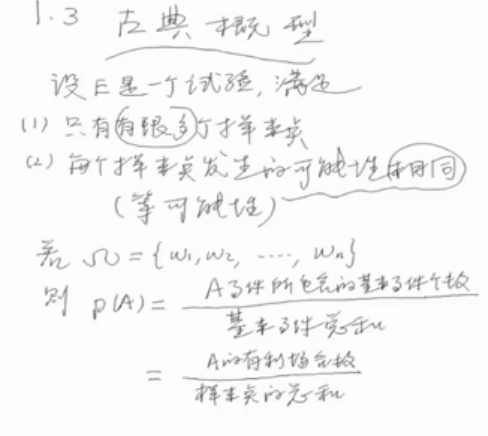 1.3 古典概型
设E是一个试验,满足
(1) 只有有限多个样本点
(2) 每个样本点发生的可能性相同
(等可能性)
若 Ω = {ω1, ω2, ...., ωn}
则 P(A) = A事件所包含的基本事件个数 / 基本事件总和
= A的有利场合数 / 样本点的总和